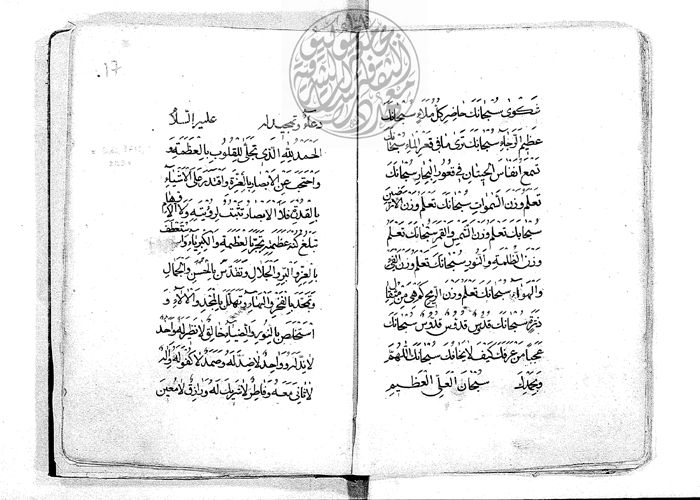 شكوى سبحانك حاضر كل ملاء سبحانك
عظيم الرجاء سبحانك ترى ما في قعر الماء سبحانك
تسمع انفاس الحيتان في قعور البحار سبحانك
تعلم وزن السموات سبحانك تعلم وزن الارضين
سبحانك تعلم وزن الشمس والقمر سبحانك تعلم
وزن الظلمة والنور سبحانك تعلم وزن الفئ
والهواء سبحانك تعلم وزن الريح كم هي من مثقال
ذرة سبحانك قدوس قدوس قدوس سبحانك
عجبا من عرفك كيف لا يخافك سبحانك اللهم
وبحمدك سبحان العلي العظيم
١٧
دعاء وتمجيد له عليه السلا
الحمد لله الذي تجلى للقلوب بالعظمة
واحتجب عن الابصار بالعزة واقتدر على الاشياء
بالقدرة فلا الابصار تثبت لرؤيته ولا الاوهام
تبلغ كنه عظمته تجبر بالعظمة والكبرياء
تعطف
بالعز والبر والجلال وتقدس بالحسن والجمال
وتمجد بالفخر والبهاء وتهلل بالمجد والالاء و
استخلص بالنور والضياء خالق لا نظير له واحد
لا ند له وواحد لا ضد له وصمد لا كفو له واله
لا ثاني معه وفاطر لا شريك له ورازق لا معين